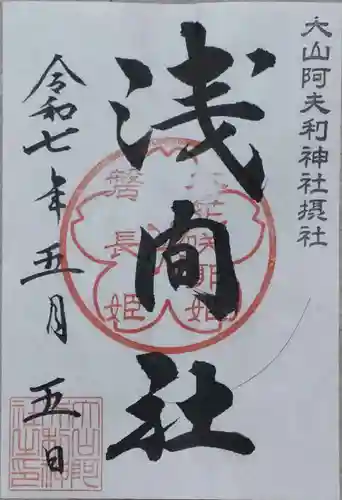 大山阿夫利神社摂社
浅間社
木花咲耶姫
磐長姫
令和七年五月五日